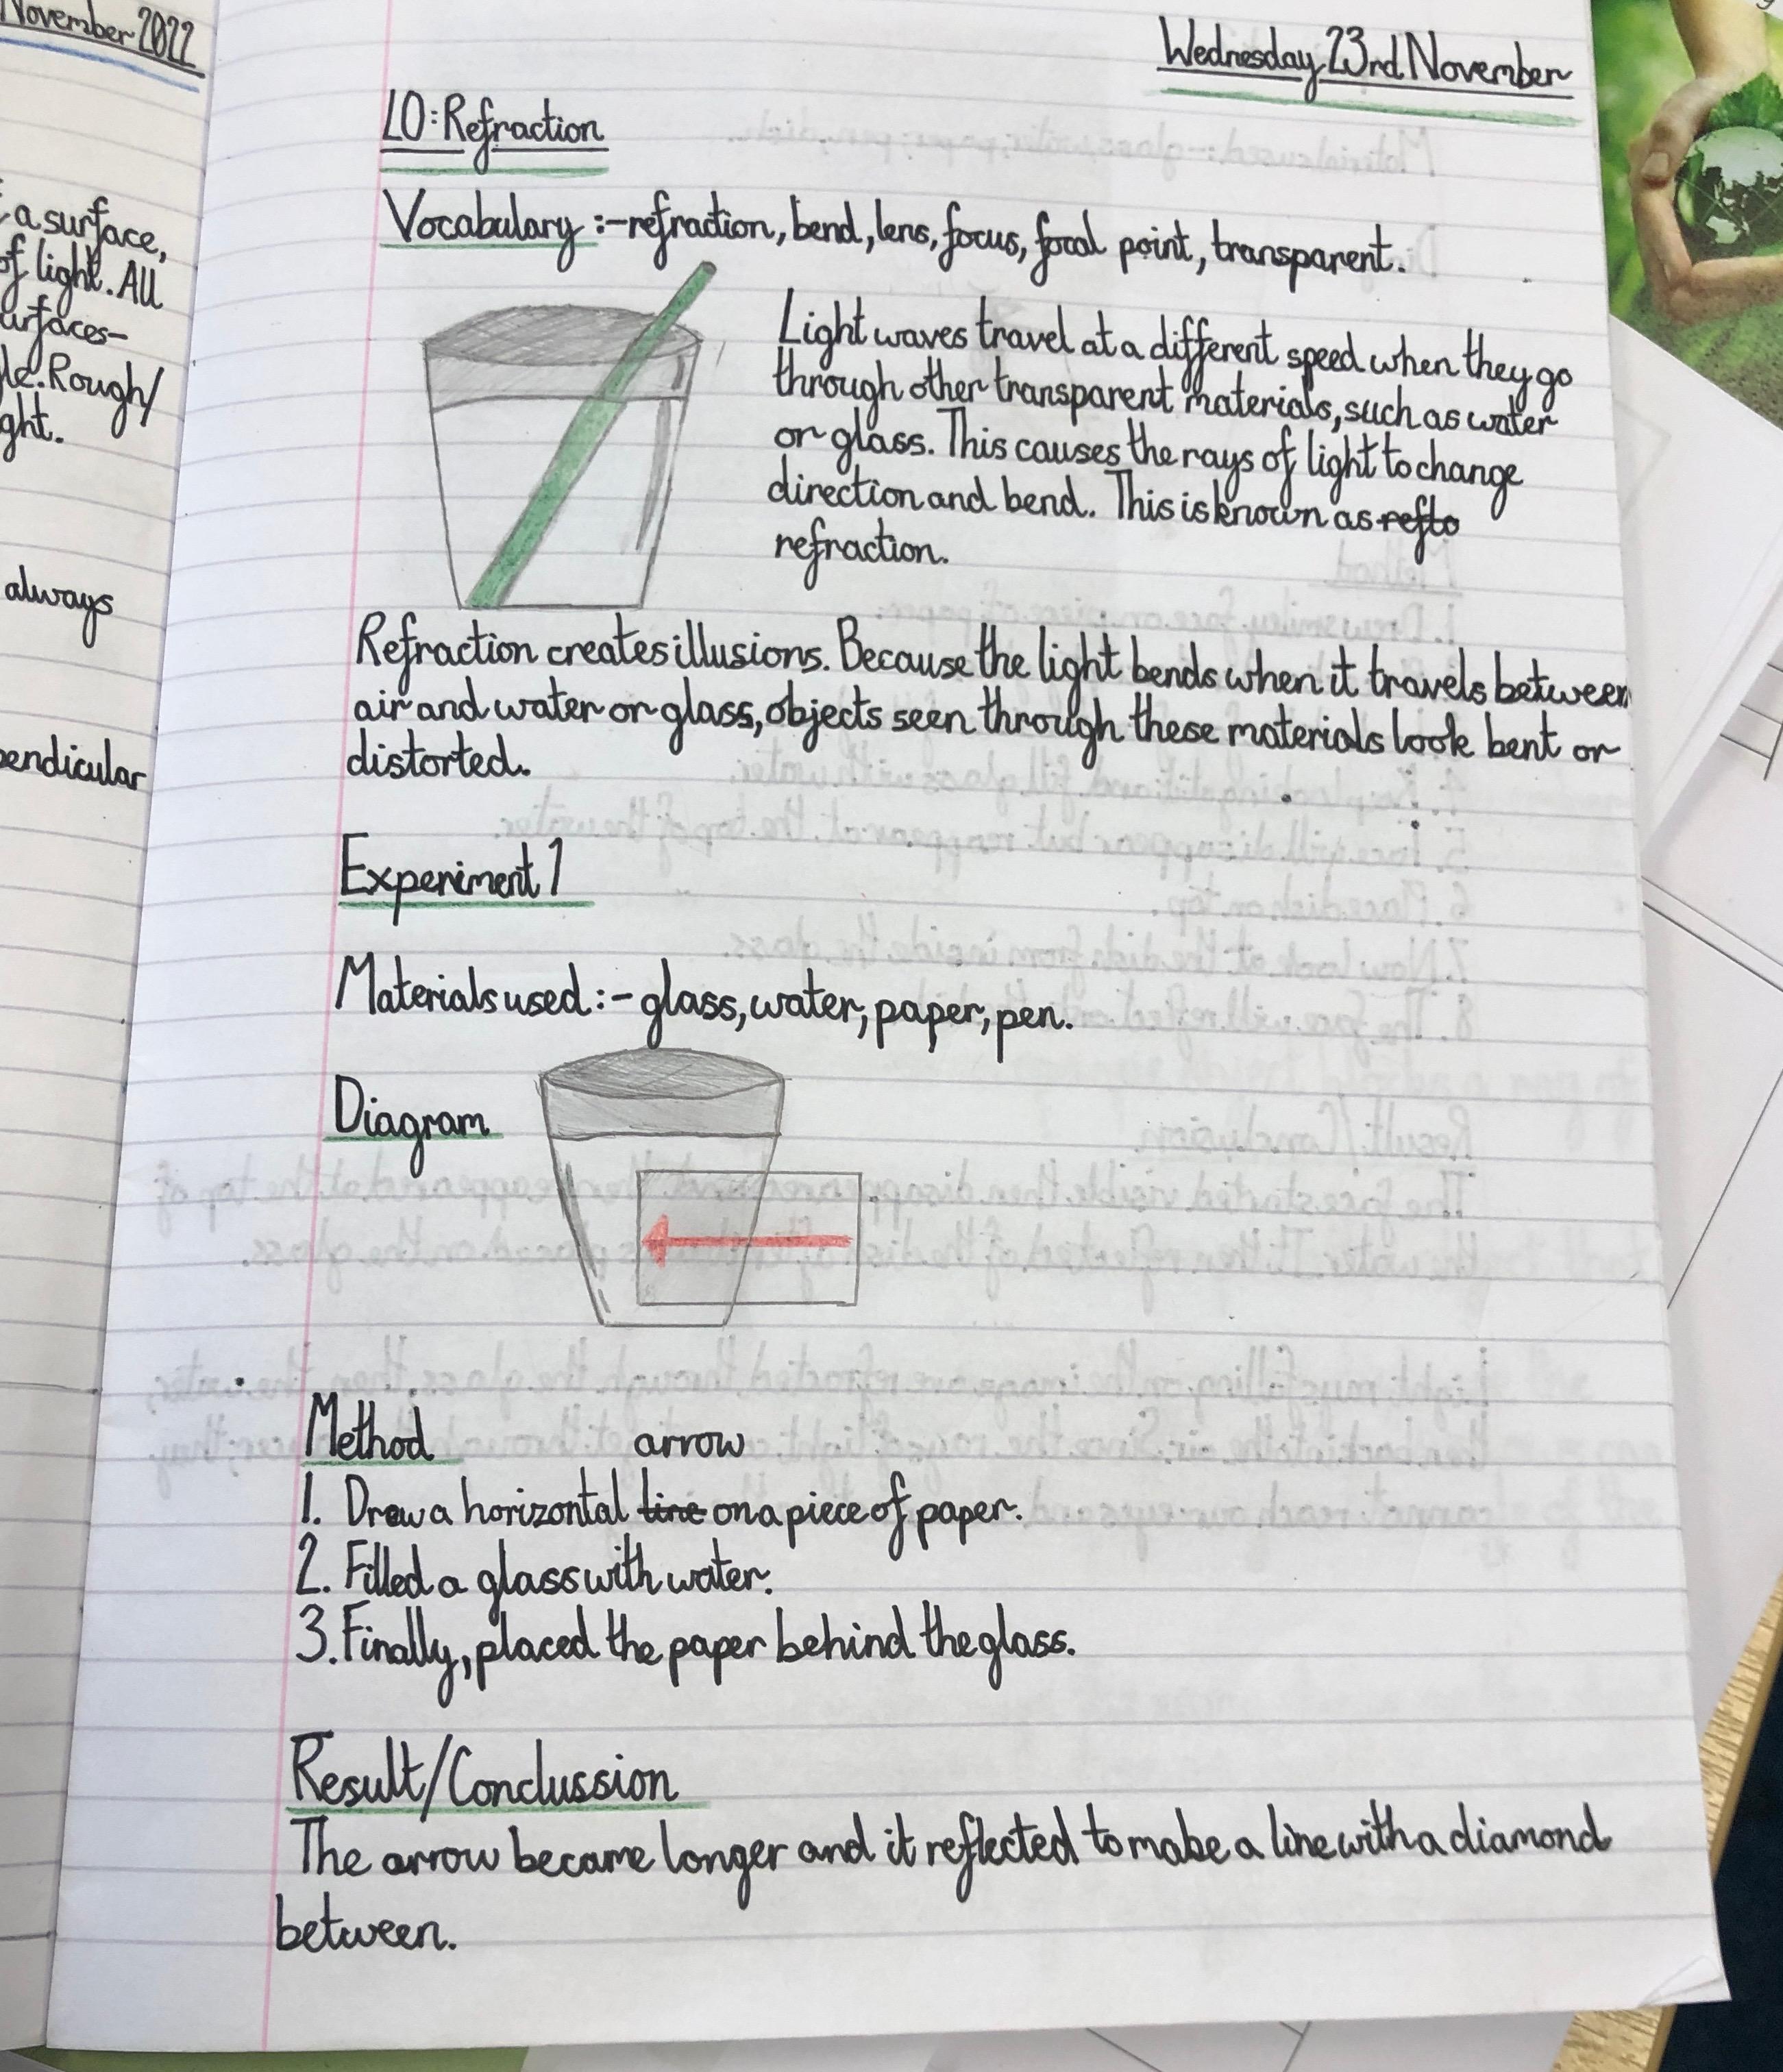 November 2022
a surface,
of light. All
urfaces-
le. Rough/
ght.
always
pendicular
Wednesday 23rd November
LO: Refraction
Vocabulary :- refraction, bend, lens, focus, focal point, transparent.
Light waves travel at a different speed when they go
through other transparent materials, such as water
or glass. This causes the rays of light to change
direction and bend. This is known as refto
refraction.
Refraction creates illusions. Because the light bends when it travels between
air and water or glass, objects seen through these materials look bent or
distorted.
Experiment 1
Materials used :- glass, water, paper, pen.
Diagram
Method
arrow
1. Drew a horizontal line on a piece of paper.
2. Filled a glass with water.
3. Finally, placed the paper behind the glass.
Result/Conclussion
The arrow became longer and it reflected to make a line with a diamond
between.